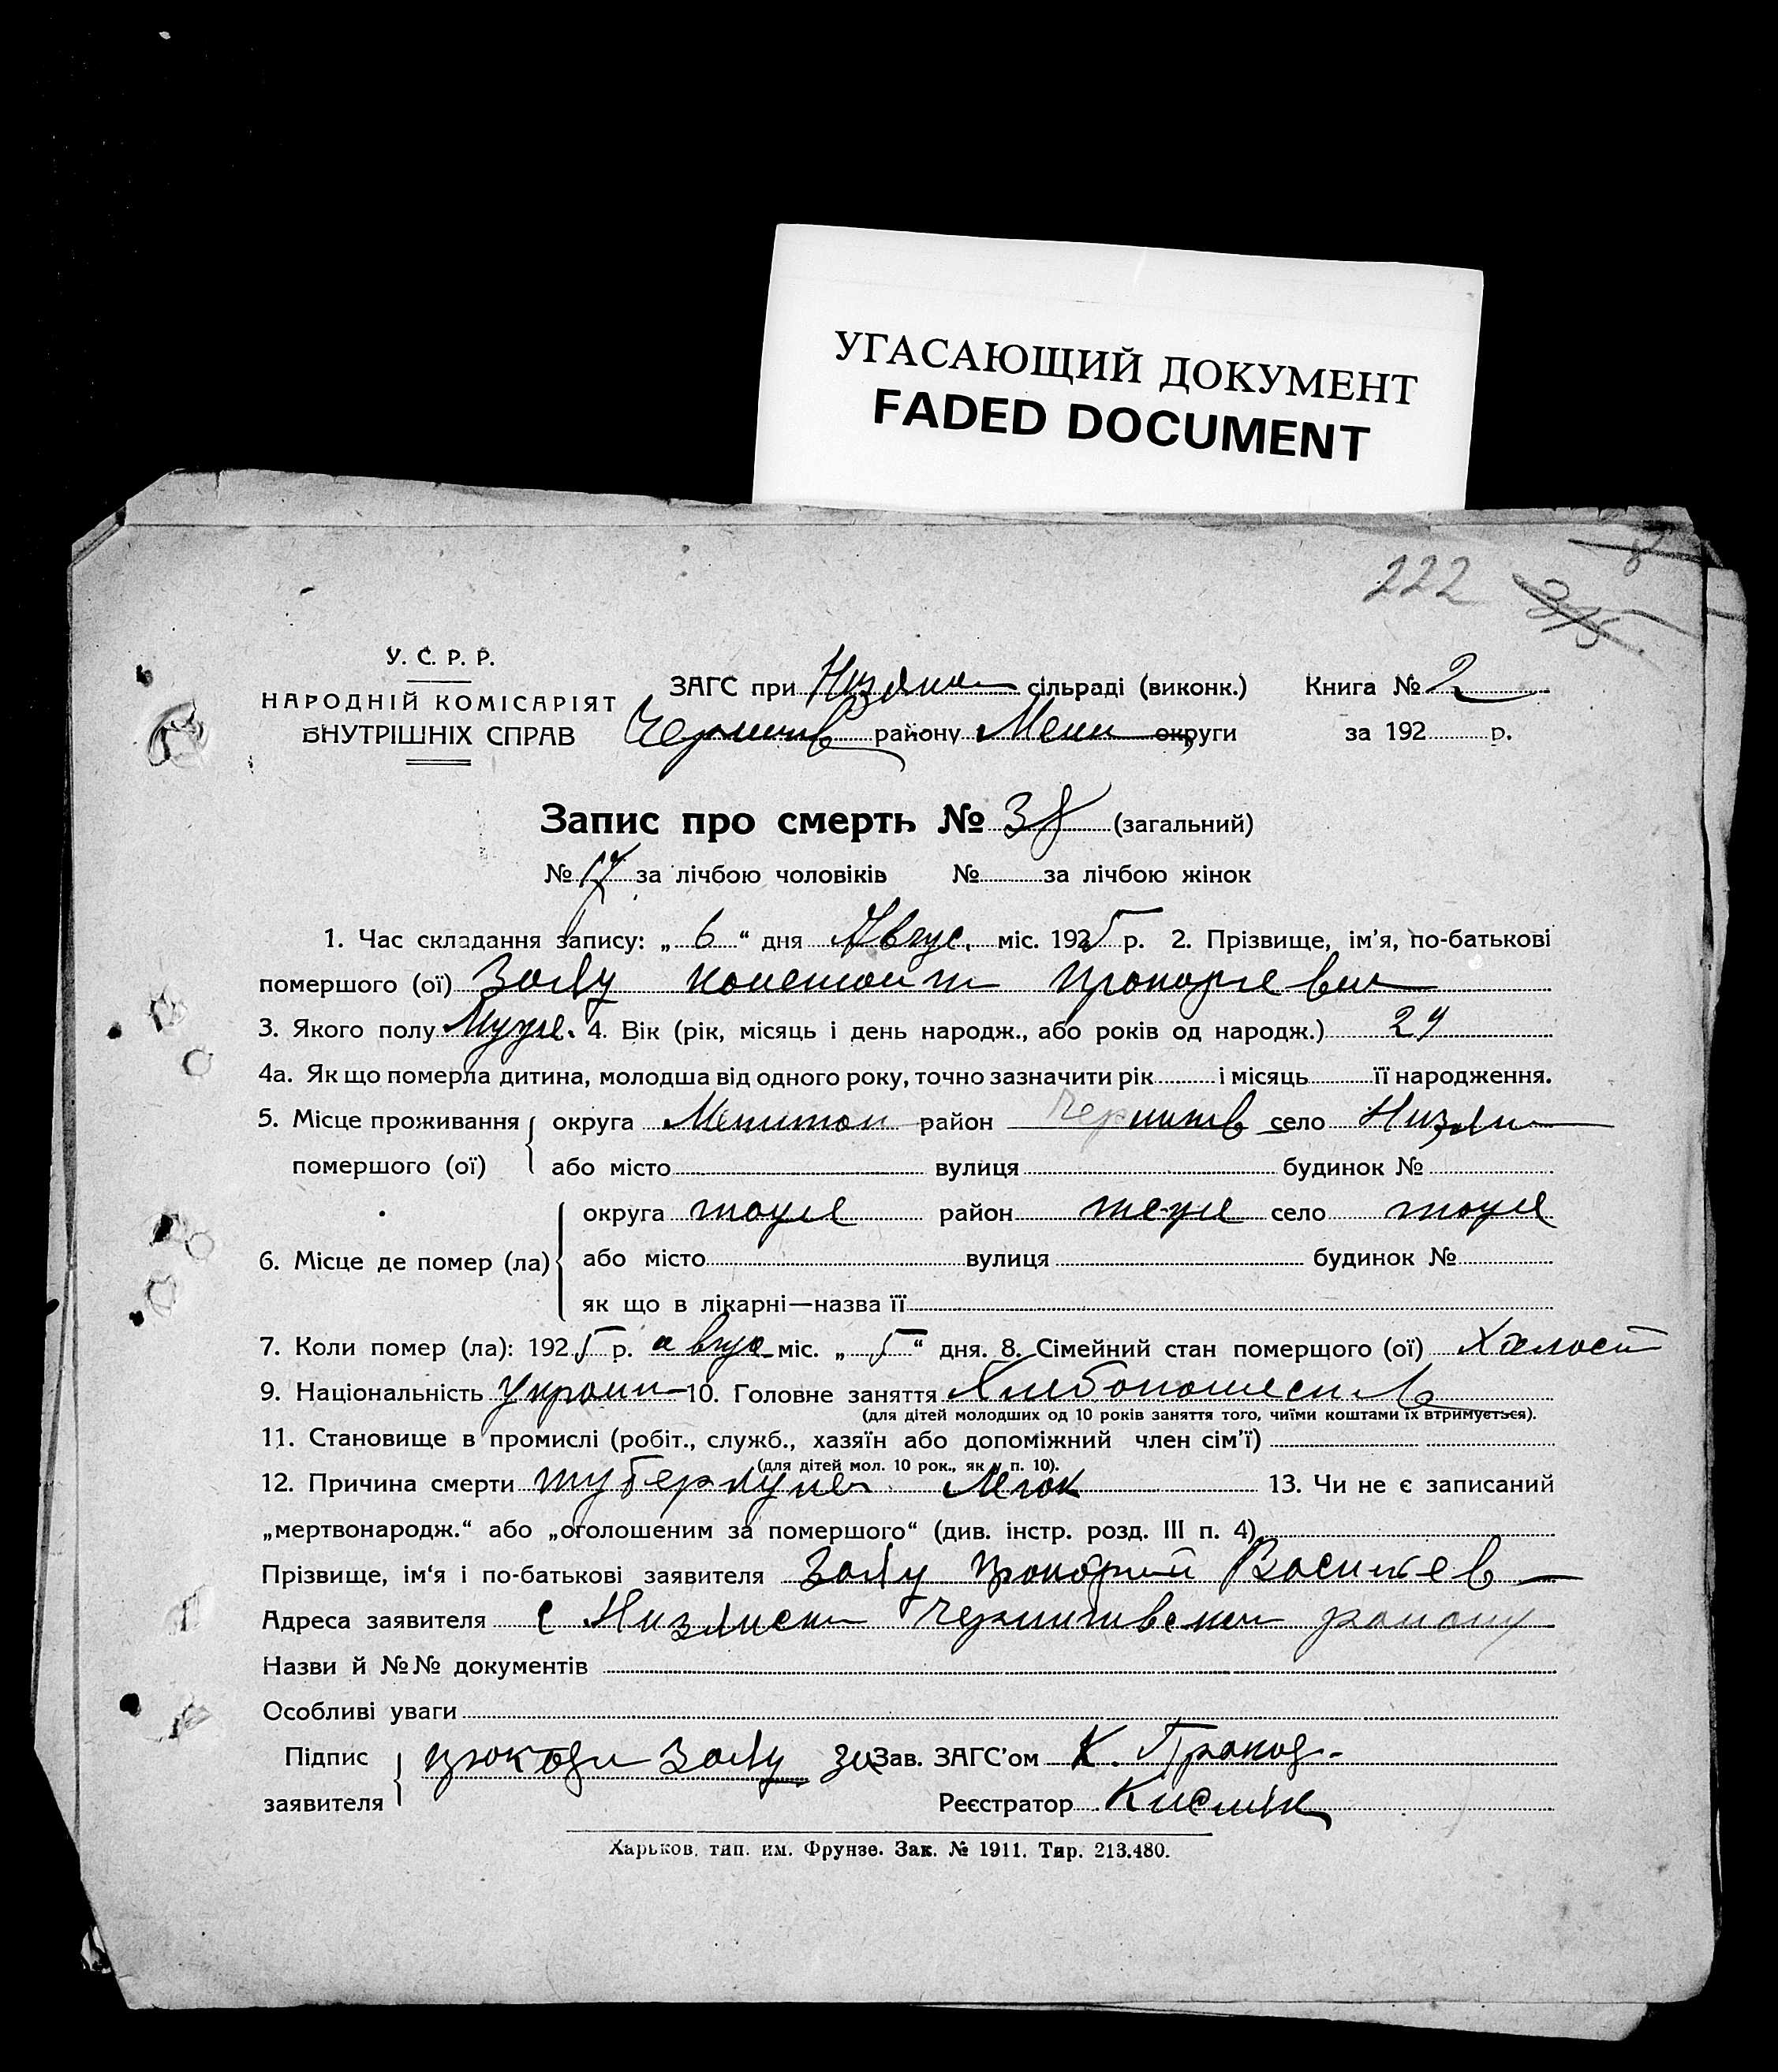 УГАСАЮЩИЙ ДОКУМЕНТ
FADED DOCUMENT
222
У. С. Р. Р.
НАРОДНІЙ КОМІСАРІЯТ
ВНУТРІШНІХ СПРАВ
ЗАГС при сільраді (виконк.) Книга № 2
району округи за 192 р.
Запис про смерть № 38 (загальний)
№ 17 за лічбою чоловіків № за лічбою жінок
1. Час складання запису: „ 6 “ дня Авгус. міс. 1925 р. 2. Прізвище, ім’я, по-батькові
помершого (ої)
3. Якого полу Муж. 4. Вік (рік, місяць і день народж., або років од народж.) 24
4а. Як що померла дитина, молодша від одного року, точно зазначити рік і місяць її народження.
5. Місце проживання округа район село
помершого (ої) або місто вулиця будинок №
округа тоже район тоже село тоже
6. Місце де помер (ла) або місто вулиця будинок №
як що в лікарні—назва її
7. Коли помер (ла): 1925 р. авгус міс. „ 5 “ дня. 8. Сімейний стан померщого (ої) Холост
9. Національність Украин 10. Головне заняття
(для дітей молодших од 10 років заняття того, чиїми коштами їх втримується).
11. Становище в промислі (робіт., служб., хазяїн або допоміжний член сім’ї)
(для дітей мол. 10 рок., як у п. 10).
12. Причина смерти туберкулез Легок 13. Чи не є записаний
„мертвонародж.“ або „оголошеним за помершого“ (див. інстр. розд. III п. 4)
Прізвище, ім‘я і по-батькові заявителя
Адреса заявителя с
Назви й №№ документів
Особливі уваги
Підпис за Зав. ЗАГС’ом К.
заявителя Реєстратор
Харьков. тип. им. Фрунзе. Зак. № 1911. Тир. 213.480.